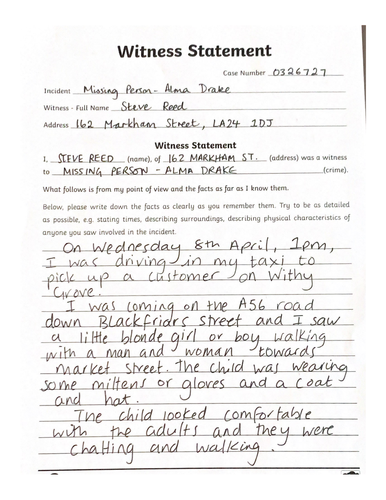 Witness Statement
Case Number 0326727
Incident Missing Person- Alma Drake
Witness - Full Name Steve Reed
Address 162 Markham Street, LA24 1DJ
Witness Statement
I, STEVE REED (name), of 162 MARKHAM ST. (address) was a witness
to MISSING PERSON - ALMA DRAKE (crime).
What follows is from my point of view and the facts as far as I know them.
Below, please write down the facts as clearly as you remember them. Try to be as detailed
as possible, e.g. stating times, describing surroundings, describing physical characteristics of
anyone you saw involved in the incident.
On Wednesday 8th April, 1pm,
I was driving in my taxi to
pick up a customer on Withy
Grove.
I was coming on the A56 road
down Blackfriars Street and I saw
a little blonde girl or boy walking
with a man and woman towards
market street. The child was wearing
some mittens or gloves and a coat
and hat.
The child looked comfortable
with the adults and they were
chatting and walking.